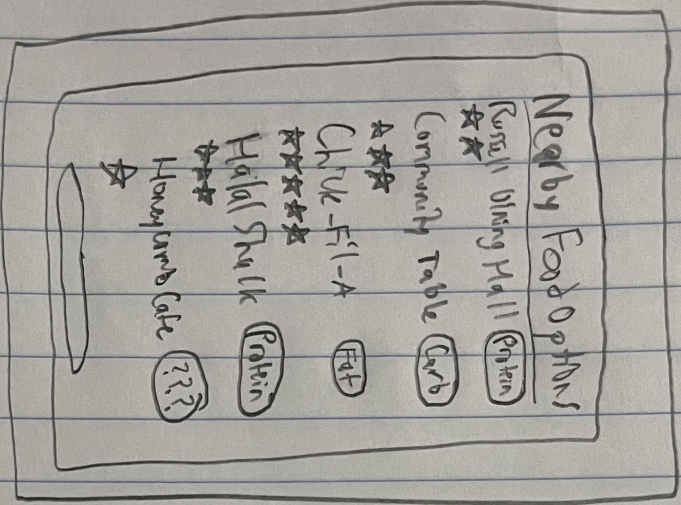 Nearby Food Options
Russell Dining Hall Protein
☆☆
Community Table Carb
☆☆☆
Chick-Fil-A Fat
☆☆☆☆☆
Halal Shack Protein
☆☆☆
Honeycomb Cafe ???
☆